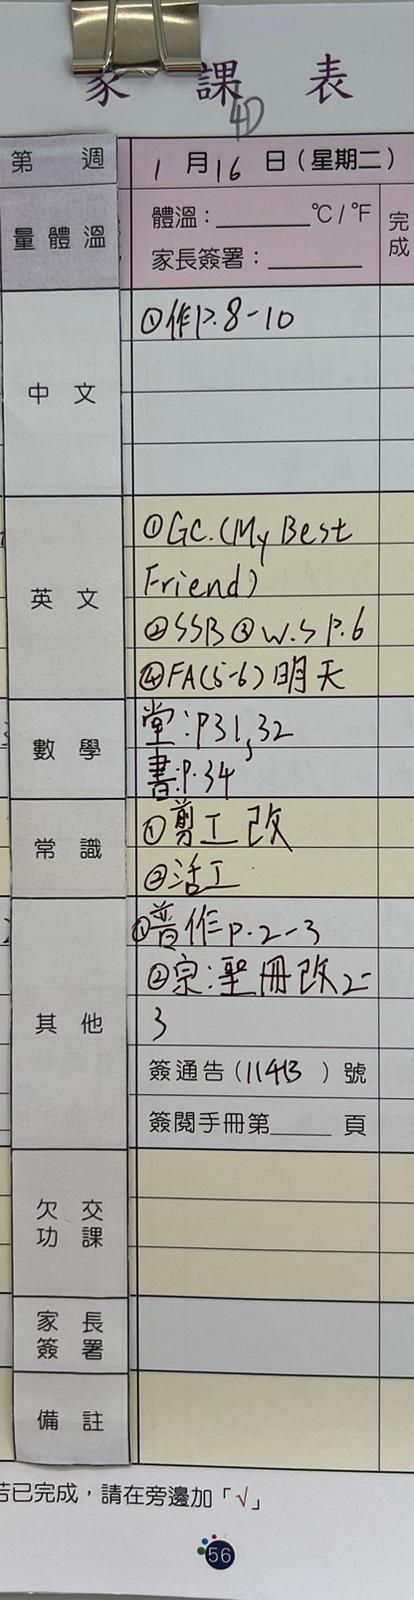 家 課 表
4D
第 週
1 月 16 日(星期二)
量體溫
體溫:________℃/℉
家長簽署:________
完成
中 文
①作P.8-10
英 文
①GC.(My Best
Friend)
②SSB ③W.S P.6
④FA(5-6)明天
數 學
堂:P31,32
書:P.34
常 識
①剪工 改
②活工
其 他
①普作P.2-3
②宗:聖冊改2-
3
簽通告(11413)號
簽閱手冊第____頁
欠 交
功 課
家 長
簽 署
備 註
若已完成,請在旁邊加「√」
56